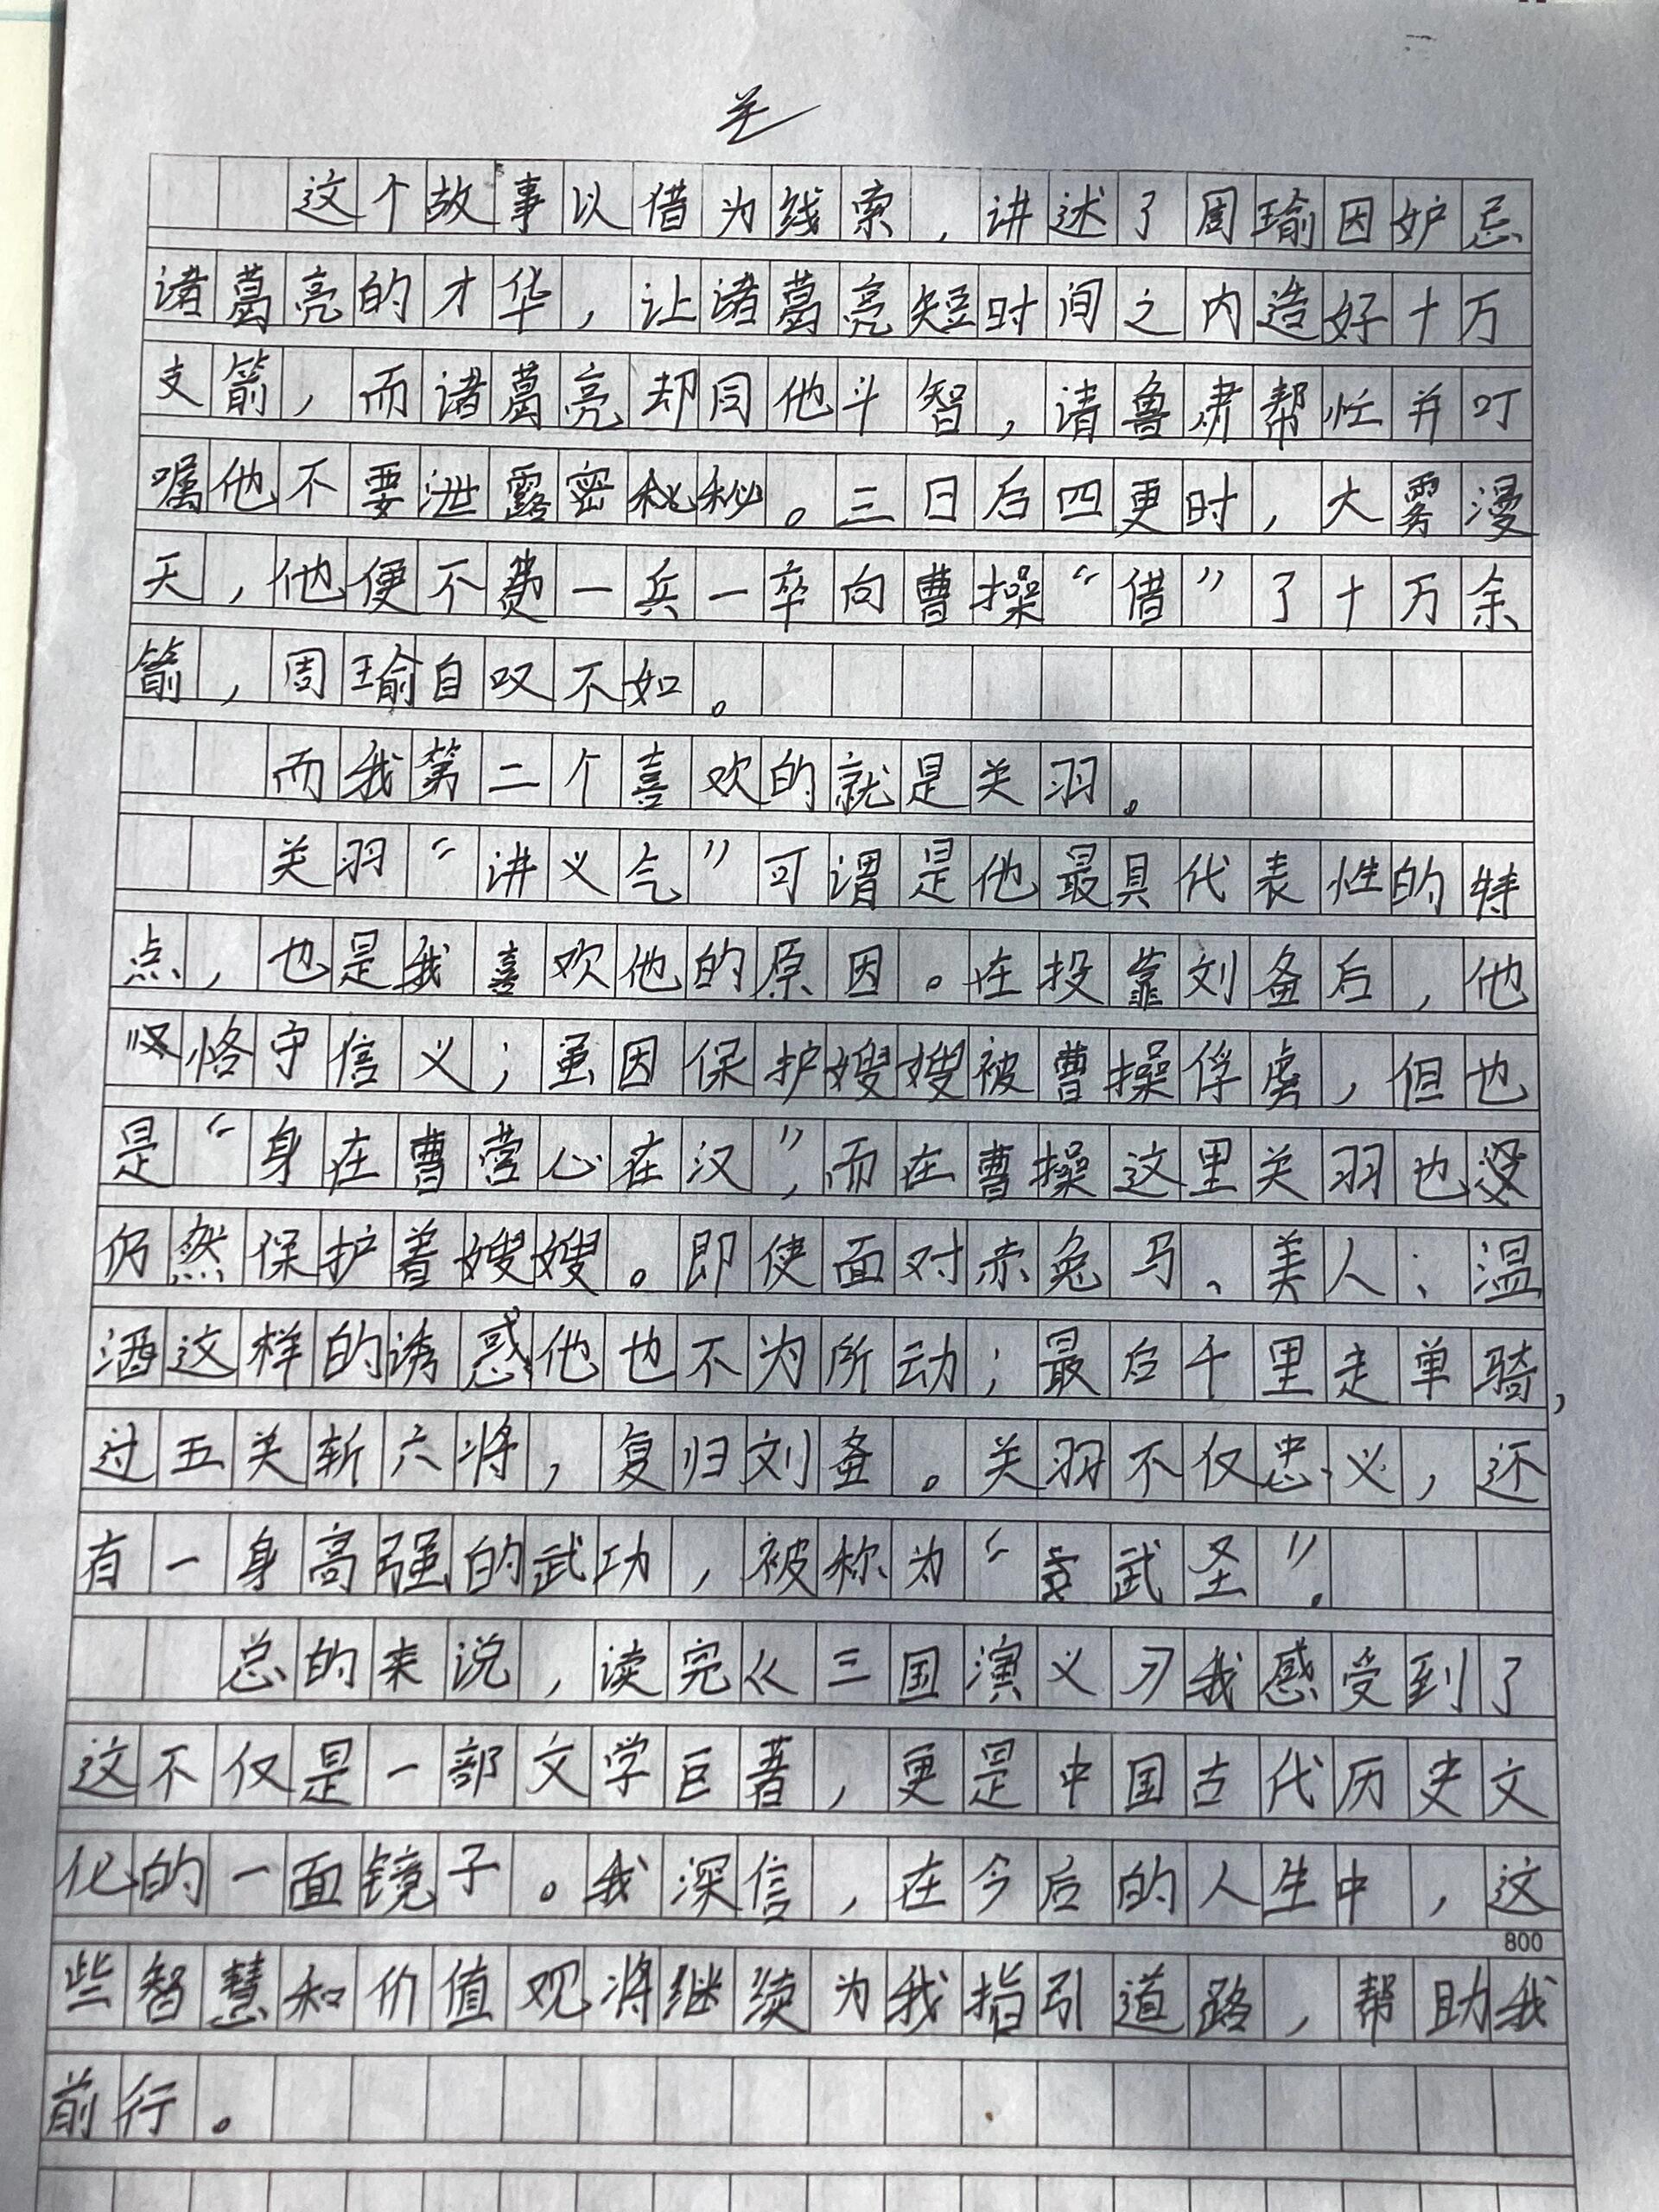 这个故事以借为线索，讲述了周瑜因妒忌
诸葛亮的才华，让诸葛亮短时间之内造好十万
支箭，而诸葛亮却同他斗智，请鲁肃帮忙并叮
嘱他不要泄露密秘。三日后四更时，大雾漫
天，他便不费一兵一卒向曹操“借”了十万余
箭，周瑜自叹不如。
而我第二个喜欢的就是关羽。
关羽“讲义气”可谓是他最具代表性的特
点，也是我喜欢他的原因。在投靠刘备后，他
恪守信义；虽因保护嫂嫂被曹操俘虏，但也
是“身在曹营心在汉”，而在曹操这里关羽也
仍然保护着嫂嫂。即使面对赤兔马、美人、温
酒这样的诱惑他也不为所动；最后千里走单骑，
过五关斩六将，复归刘备。关羽不仅忠义，还
有一身高强的武功，被称为“武圣”。
总的来说，读完《三国演义》我感受到了
这不仅是一部文学巨著，更是中国古代历史文
化的一面镜子。我深信，在今后的人生中，这
800
些智慧和价值观将继续为我指引道路，帮助我
前行。